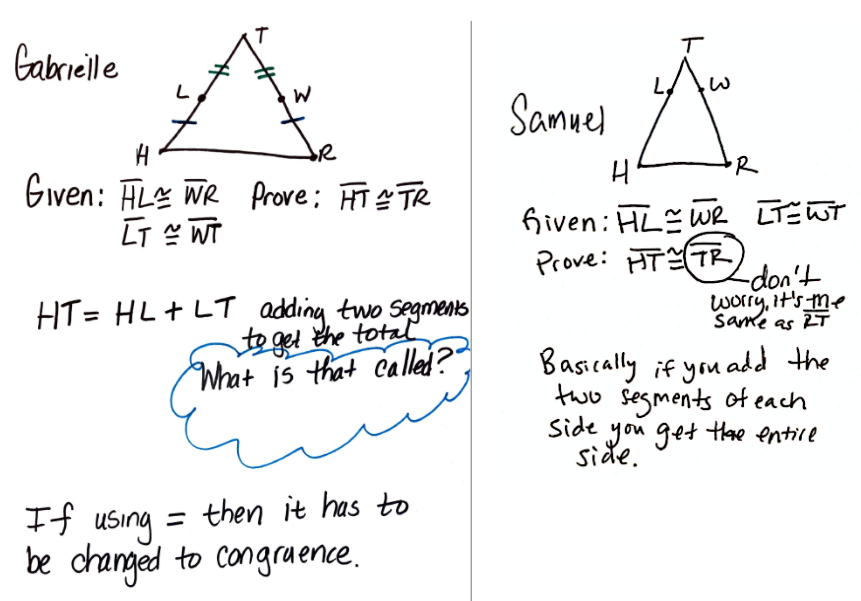 Gabrielle
T
L
W
H
R
Given: H̅L̅ ≅ W̅R̅ Prove: H̅T̅ ≅ T̅R̅
L̅T̅ ≅ W̅T̅
HT = HL + LT adding two segments
to get the total
What is that called?
If using = then it has to
be changed to congruence.
Samuel
T
L
W
H
R
Given: H̅L̅ ≅ W̅R̅ L̅T̅ ≅ W̅T̅
Prove: H̅T̅ ≅ T̅R̅
don't
worry, it's the
same as R̅T̅
Basically if you add the
two segments of each
side you get the entire
side.